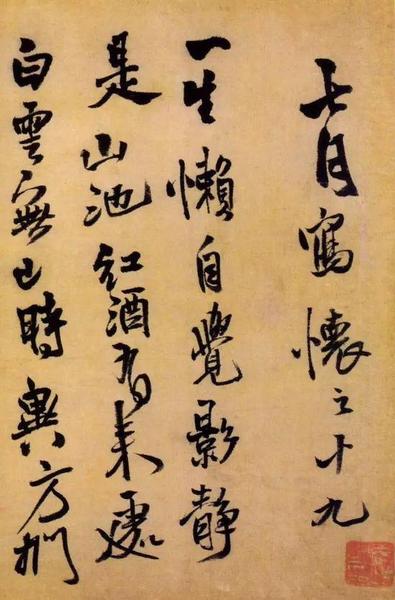 七月寫懷之十九
一生懶自覺影靜
是山池紅酒有來處
白雲無已時興方捫